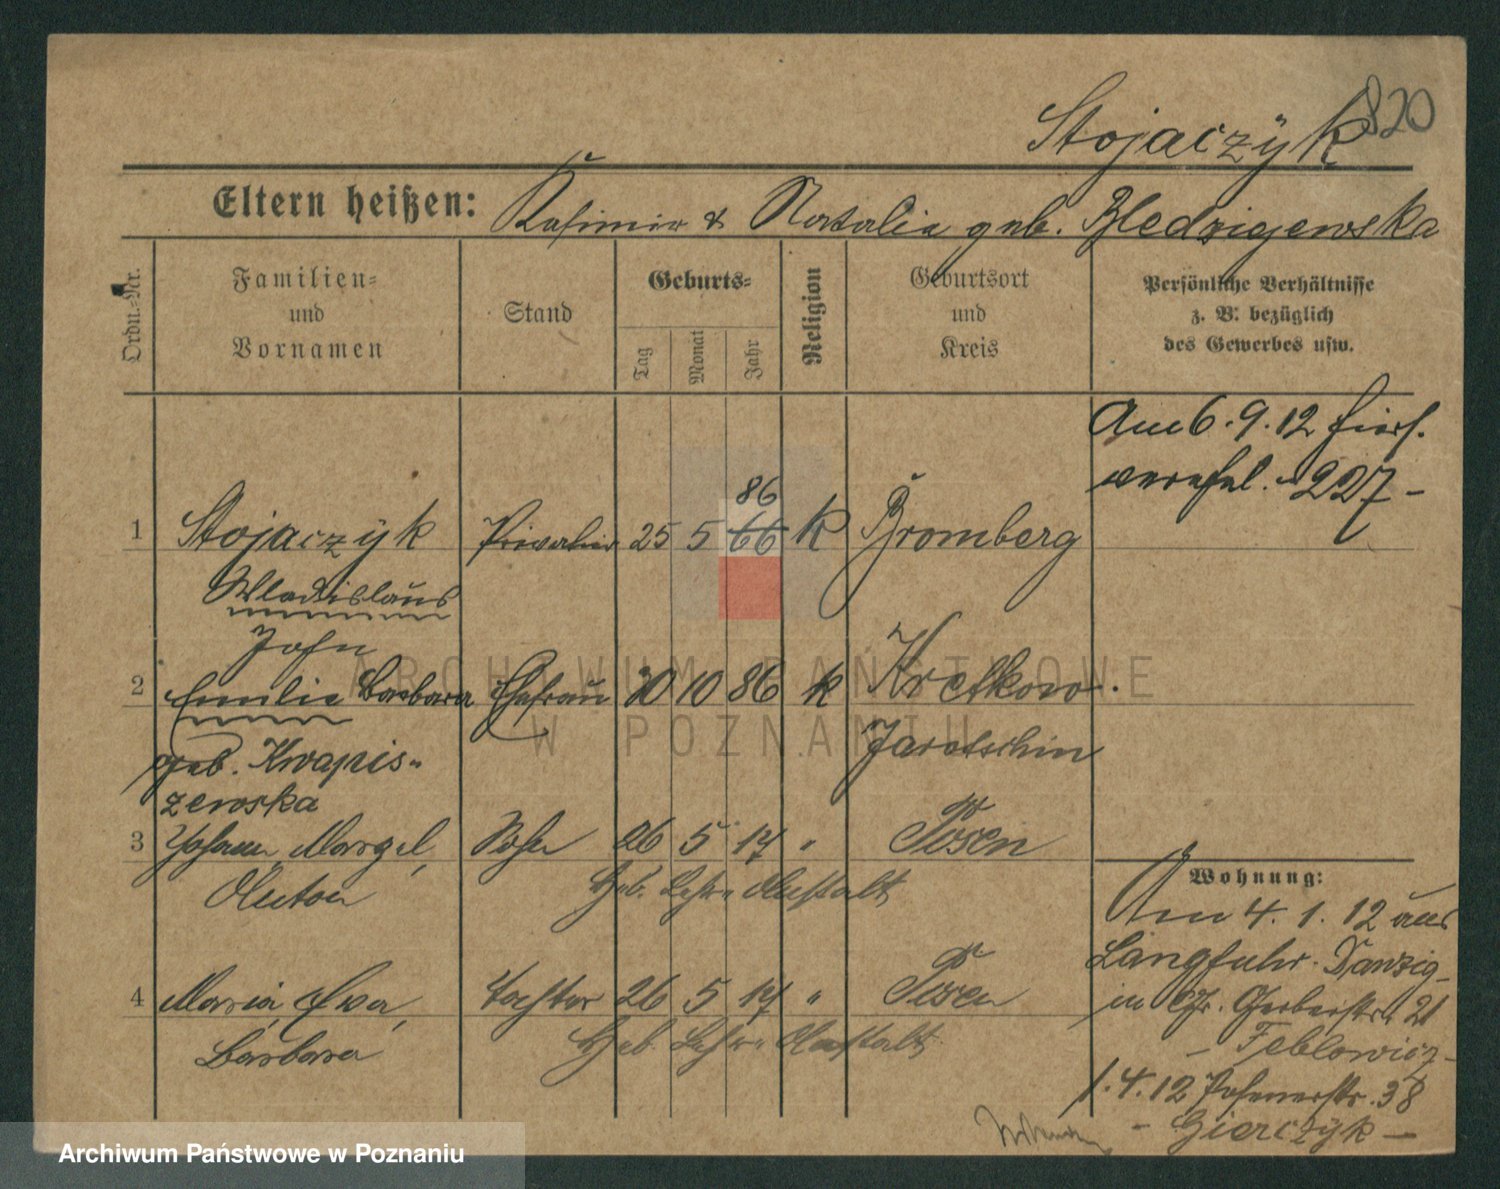 820
Stojaczÿk
Eltern heißen: Kasimir & Natalia geb. Bledzigewska
Ordn.-Nr.
Familien- und Vornamen
Stand
Geburts-
Tag
Monat
Jahr
Religion
Geburtsort und Kreis
Persönliche Verhältnisse
z. B. bezüglich
des Gewerbes usw.
Am 6.9.12 hier
verehel. 227
86
1 Stojaczÿk 25 5 66 K Bromberg
Wladislaus
John
2 Emilie Barbara Ehefrau 30 10 86 k Kretkowo.
geb. Kwapis- Jarotschin
zewska
3 Johann, Marzel, Sohn 26 5 17 " Posen
Anton Heb. Lehr- Anstalt
4 Maria, Eva, Tochter 26 5 17 " Posen
Barbara Heb. Lehr- Anstalt
Wohnung:
Am 4.1.12 aus
Langfuhr-Danzig-
in Gr. Gerberstr. 21
- Feblowicz-
1.4.12 Posenerstr. 38
- Gierczÿk -
ARCHIWUM PAŃSTWOWE
W POZNANIU
Archiwum Państwowe w Poznaniu